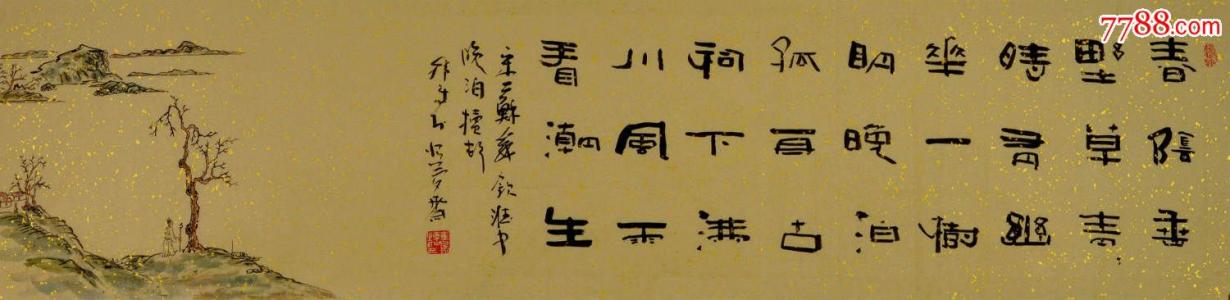 7788.com
春陰垂
野草青〻
時有幽
華一樹
眀晚泊
孤舟古
祠下滿
川風雨
看潮生
宋蘇舜欽淮中
晚泊犢頭